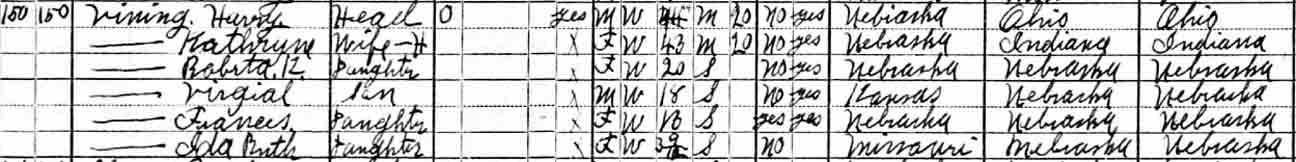 150 150 Vining, Harry Head O yes M W M 20 no yes Nebraska Ohio Ohio
—— Kathryne Wife-H X F W 43 M 20 no yes Nebraska Indiana Indiana
—— Robrta. K. Daughter X F W 20 S no yes Nebraska Nebraska Nebraska
—— Virgial Son X M W 18 S no yes Kansas Nebraska Nebraska
—— Frances Daughter X F W S yes yes Nebraska Nebraska Nebraska
—— Ida Ruth Daughter X F W S no Missouri Nebraska Nebraska